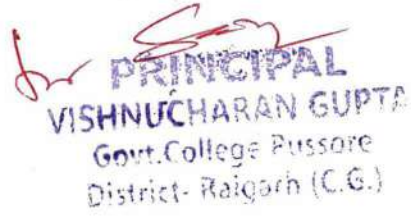 for
PRINCIPAL
VISHNUCHARAN GUPTA
Govt.College Pussore
District- Raigarh (C.G.)